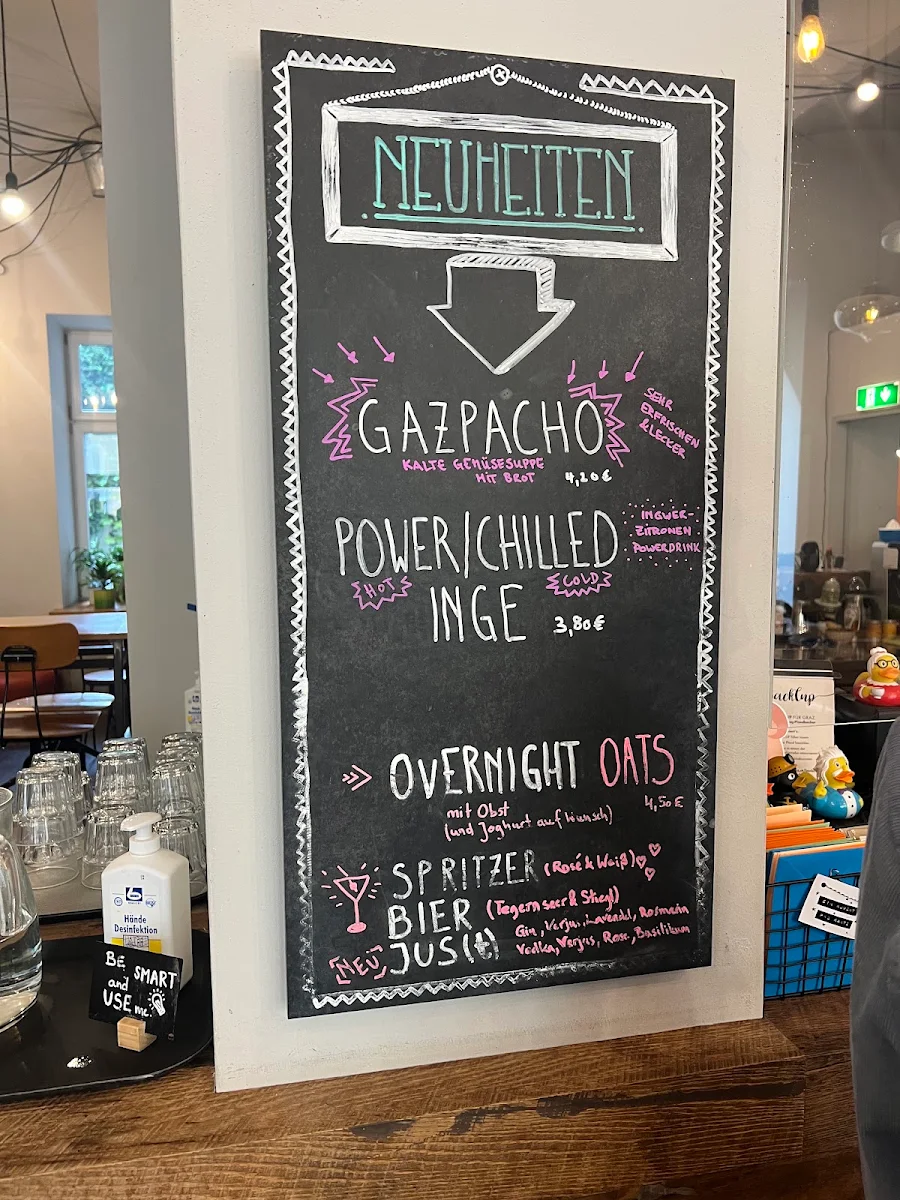 NEUHEITEN
GAZPACHO
SEHR
ERFRISCHEN
& LECKER
KALTE GEMÜSESUPPE
MIT BROT
4,20€
POWER/CHILLED
INGWER-
ZITRONEN
POWERDRINK
HOT
COLD
INGE
3,80€
OVERNIGHT OATS
4,50€
mit Obst
(und Joghurt auf Wunsch)
SPRITZER (Rosé & Weiß)
BIER (Tegernseer & Stiegl)
NEU JUS(t)
Gin, Verjus, Lavendel, Rosmarin
Vodka, Verjus, Rose, Basilikum
Hände
Desinfektion
BE SMART
and
USE me.
ackCup